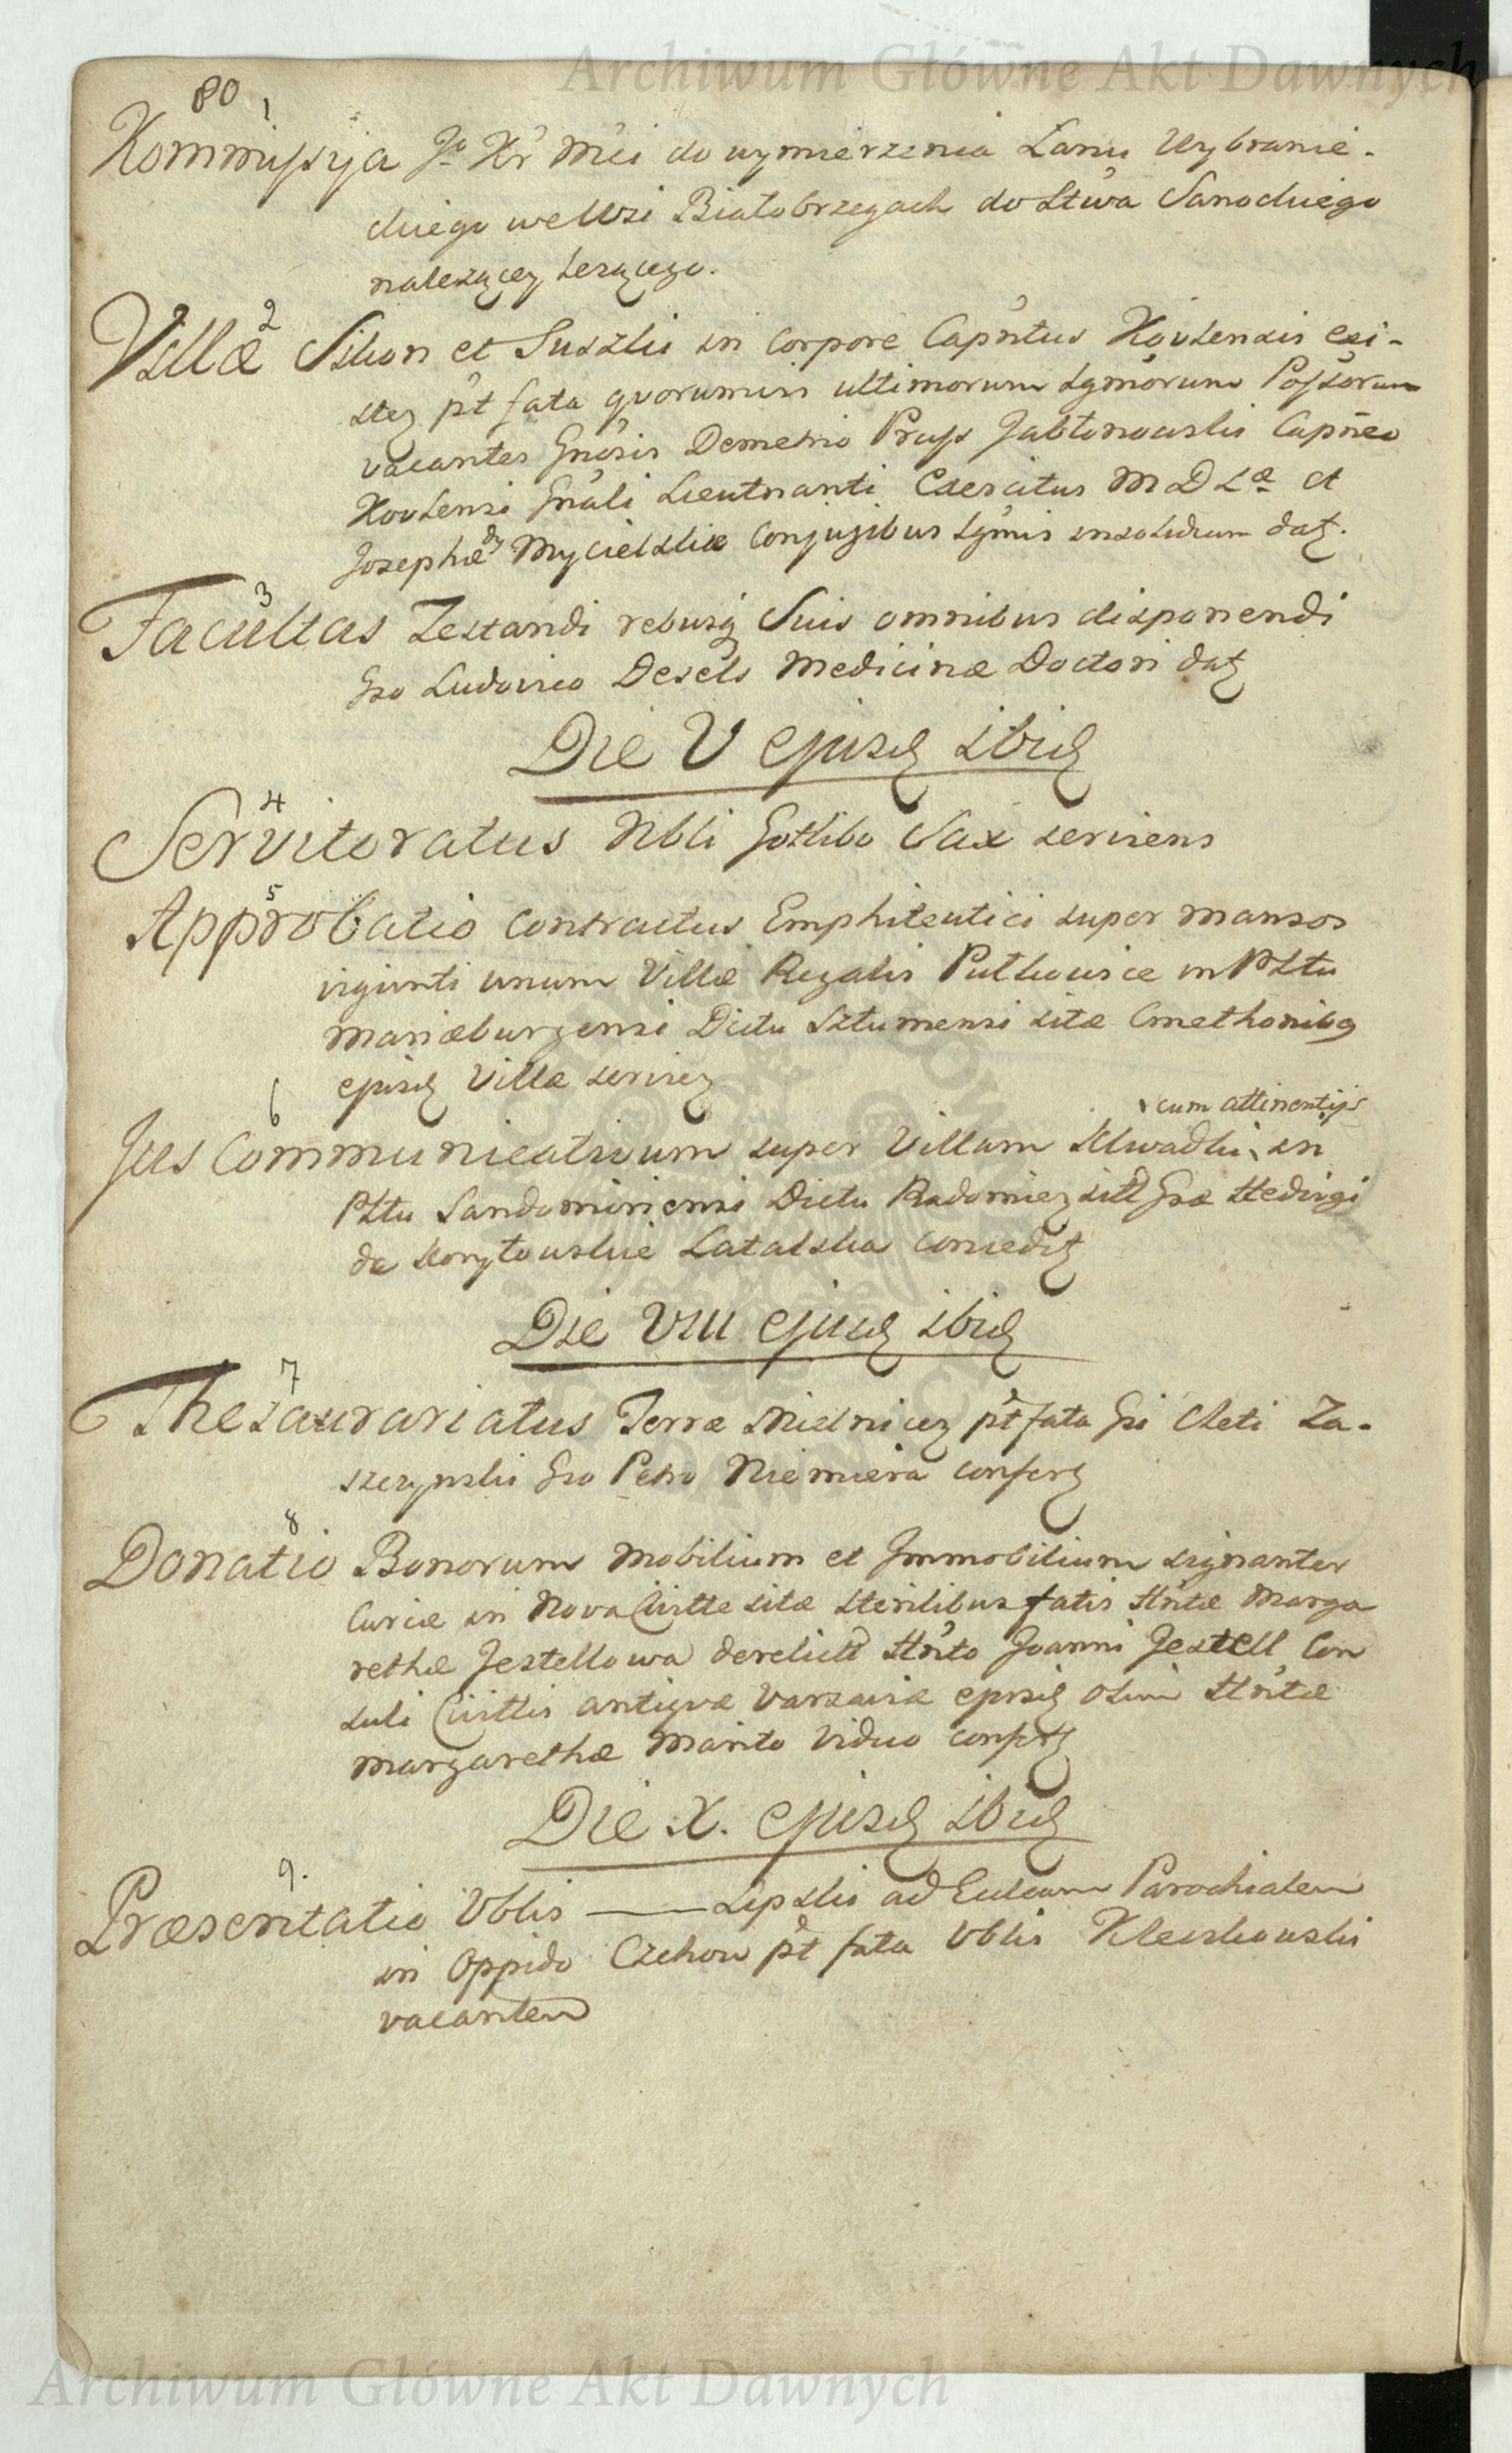 Archiwum Główne Akt Dawnych
80
1
Kommissyja Jo Kr Mci do wymierzenia Łanu Wybranie-
ckiego we Wsi Białobrzegach do Stwa Sanockiego
należącey leżącego.
2
Villæ et Suszki in Corpore Capntus Kovlensis exi-
sten pt fata quorumvis ultimorum Lgmorum Possorum
vacantes Gnosis Demetrio Pruss Jabłonowski Capneo
Kovlensi Gnali Lieutnanti Exercitus M D Læ et
Josephæ de Mycielskie Conjugibus Lgmis insolidum dat.
3
Facultas Testandi rebusq Suis omnibus disponendi
Gso Ludovico Medicinæ Doctori dat
Die V ejusd ibid
4
Servitoratus Nbli Gotlibo Sax serviens
5
Approbatio Contractus Emphiteutici super mansos
viginti unum Villæ Regalis Putkowice in Pltu
Mariæburgensi Dictu Sztumensi sitæ Cmethonibg
ejusd Villæ servien
6
cum attinentijs
Jus Communicativum super Villam in
Pltu Sandomiriensi Dictu Radomien sitt Gsæ Hedvigi
de Korytowskie Latalska conced
Die VIII ejusd ibid
7
Thesaurariatus Terræ Mielnicen pt fata Gsi Cleti Za-
szczynski Gso Petro Niemiera confert
8
Donatio Bonorum Mobilium et Immobilium signanter
Curiæ in Nova Civitte sitæ sterilibus fatis Hntæ Marga
rethæ Jestellowa derelict Hnto Joanni Jestell Con
suli Civittis antiquæ Varsaviæ ejusd olim Hntæ
Margarethæ Marito Viduo confert
Die X. ejusd ibid
9.
Præsentatio Vblis — Lipski ad Ecclam Parochialem
in Oppido Czchow pt fata Vblis Kleczkowski
vacantem
Archiwum Główne Akt Dawnych